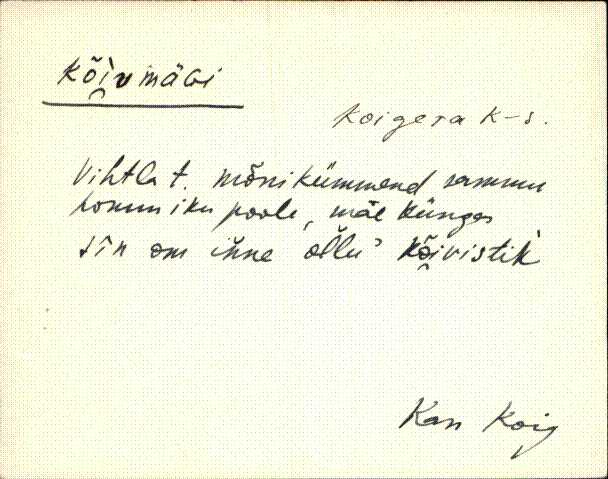 Kõi̯vmäGi
Koigera k-s.
Vihtla t. mõnikümmend sammu
hommiku poole, mäe künges
sīn om ińne õllu' kõi̯vistik
Kan Koig